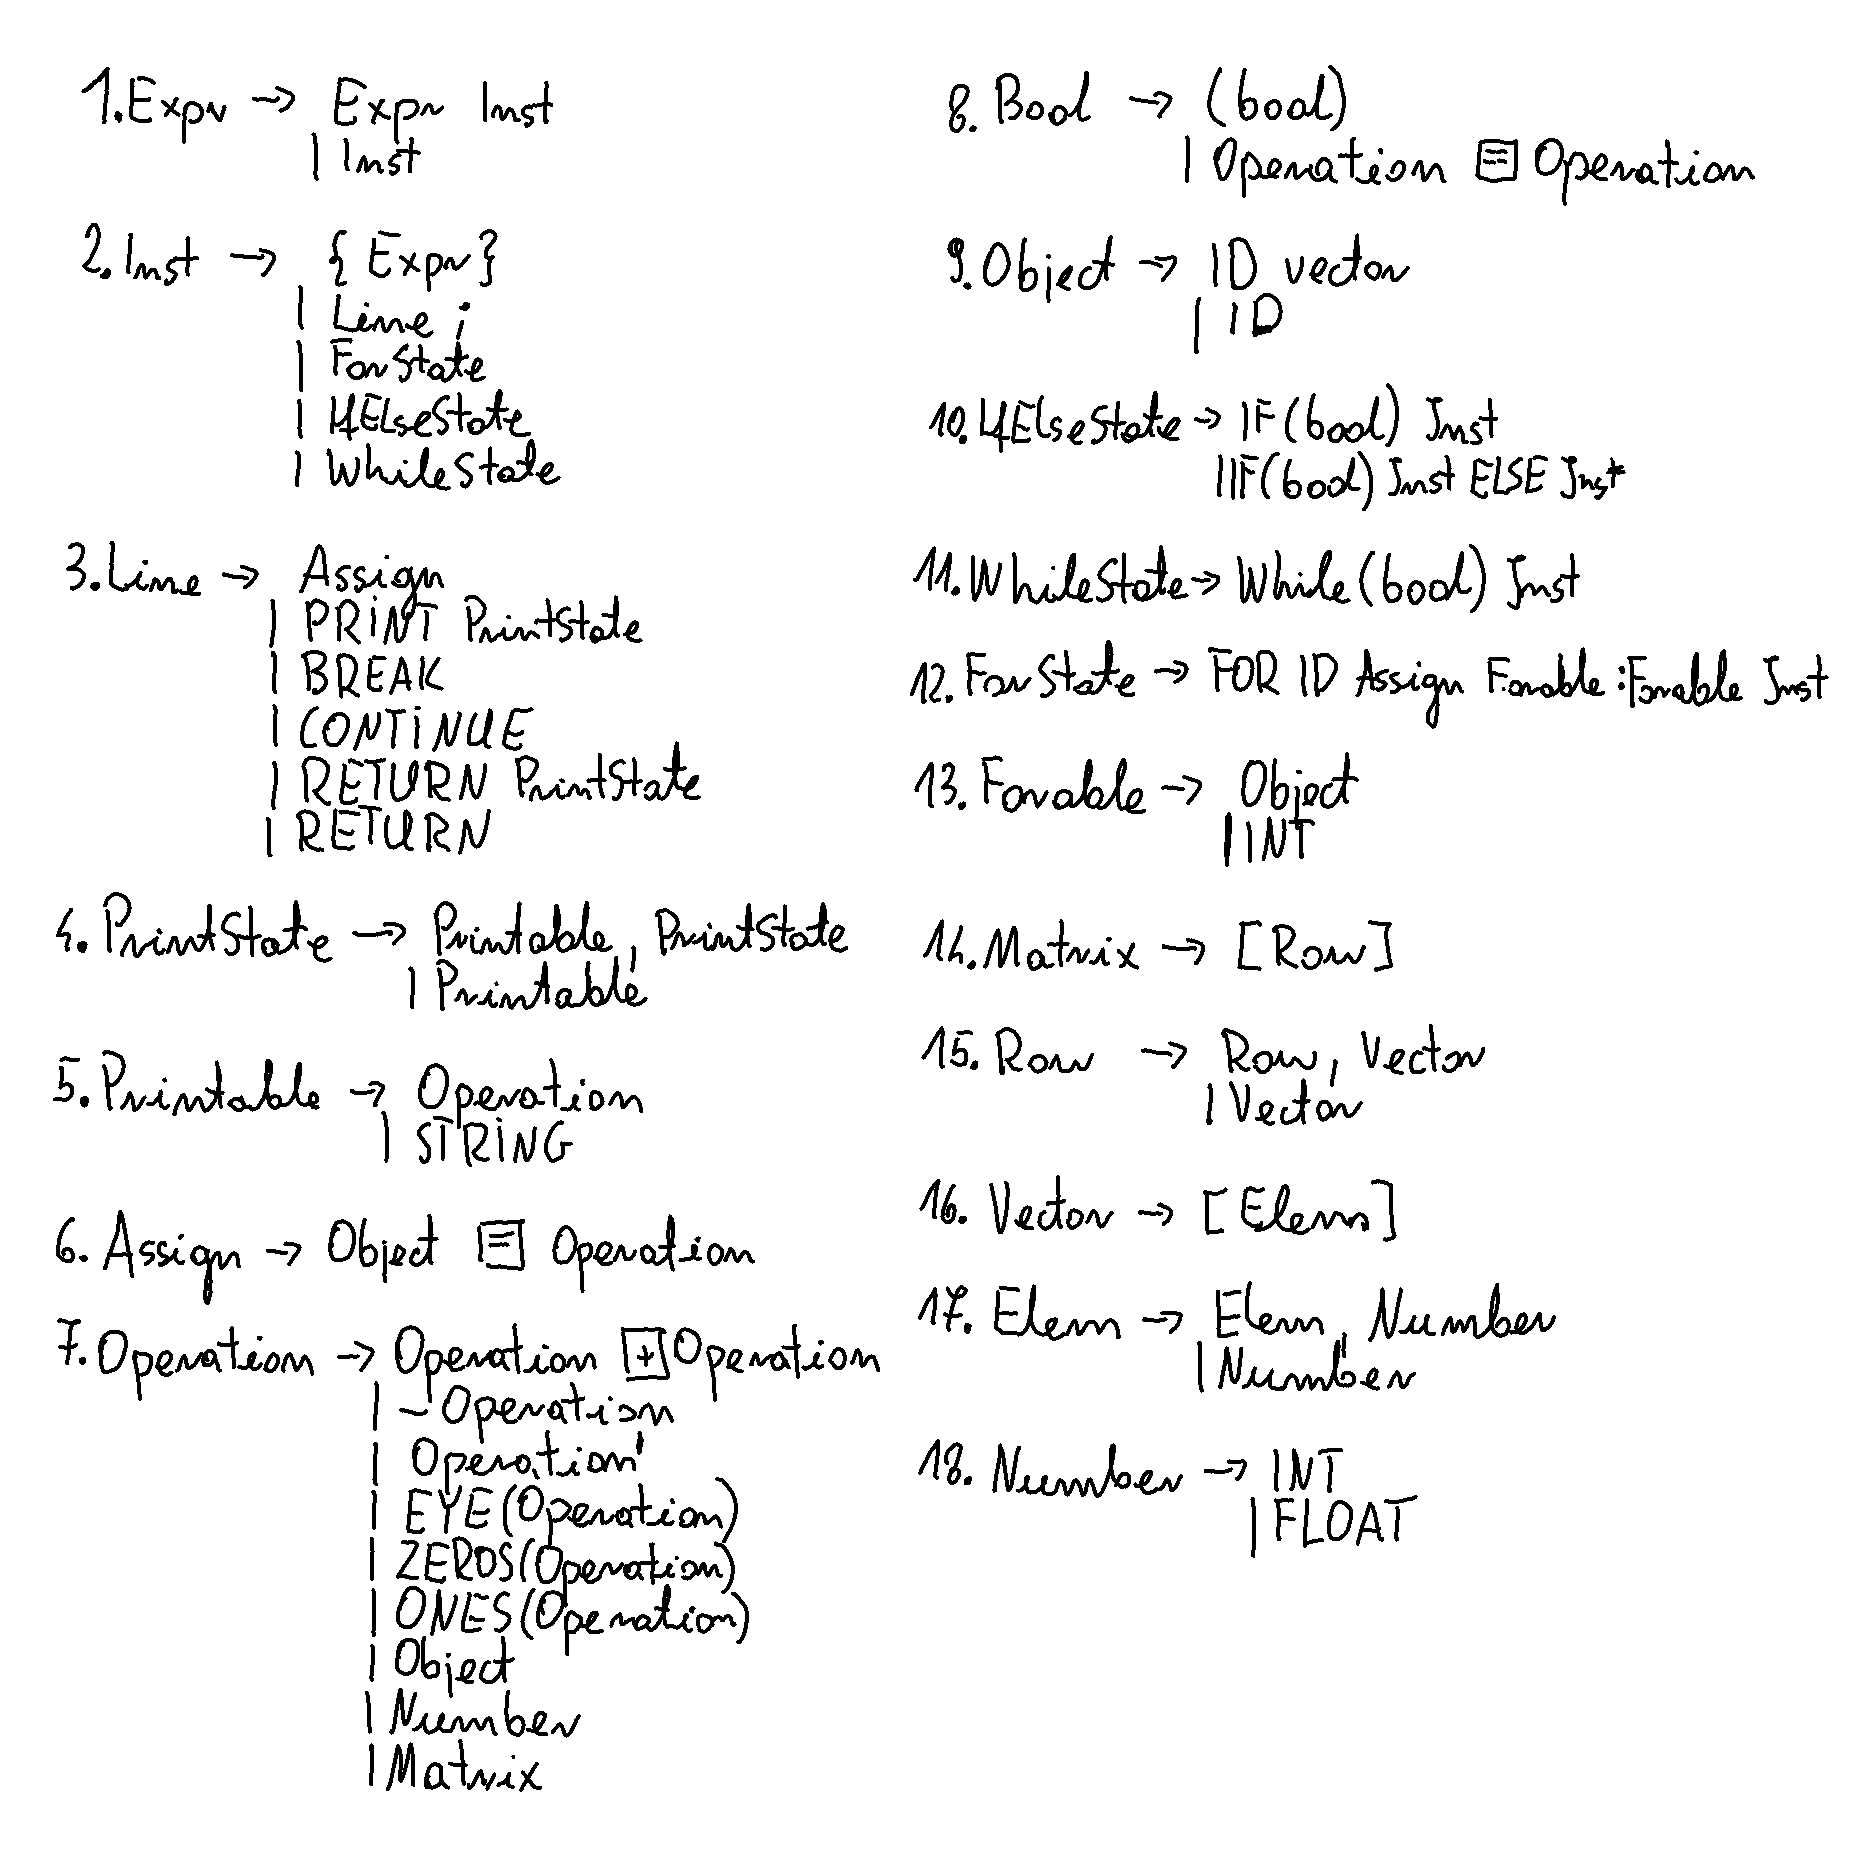 1. Expr → Expr Inst
| Inst
2. Inst → { Expr }
| Line ;
| ForState
| IfElseState
| WhileState
3. Line → Assign
| PRINT PrintState
| BREAK
| CONTINUE
| RETURN PrintState
| RETURN
4. PrintState → Printable, PrintState
| Printable
5. Printable → Operation
| STRING
6. Assign → Object = Operation
7. Operation → Operation + Operation
| - Operation
| Operation'
| EYE(Operation)
| ZEROS(Operation)
| ONES(Operation)
| Object
| Number
| Matrix
8. Bool → (bool)
| Operation == Operation
9. Object → ID vector
| ID
10. IfElseState → IF(bool) Inst
| IF(bool) Inst ELSE Inst
11. WhileState → While(bool) Inst
12. ForState → FOR ID Assign Forable : Forable Inst
13. Forable → Object
| INT
14. Matrix → [Row]
15. Row → Row, Vector
| Vector
16. Vector → [Elem]
17. Elem → Elem, Number
| Number
18. Number → INT
| FLOAT